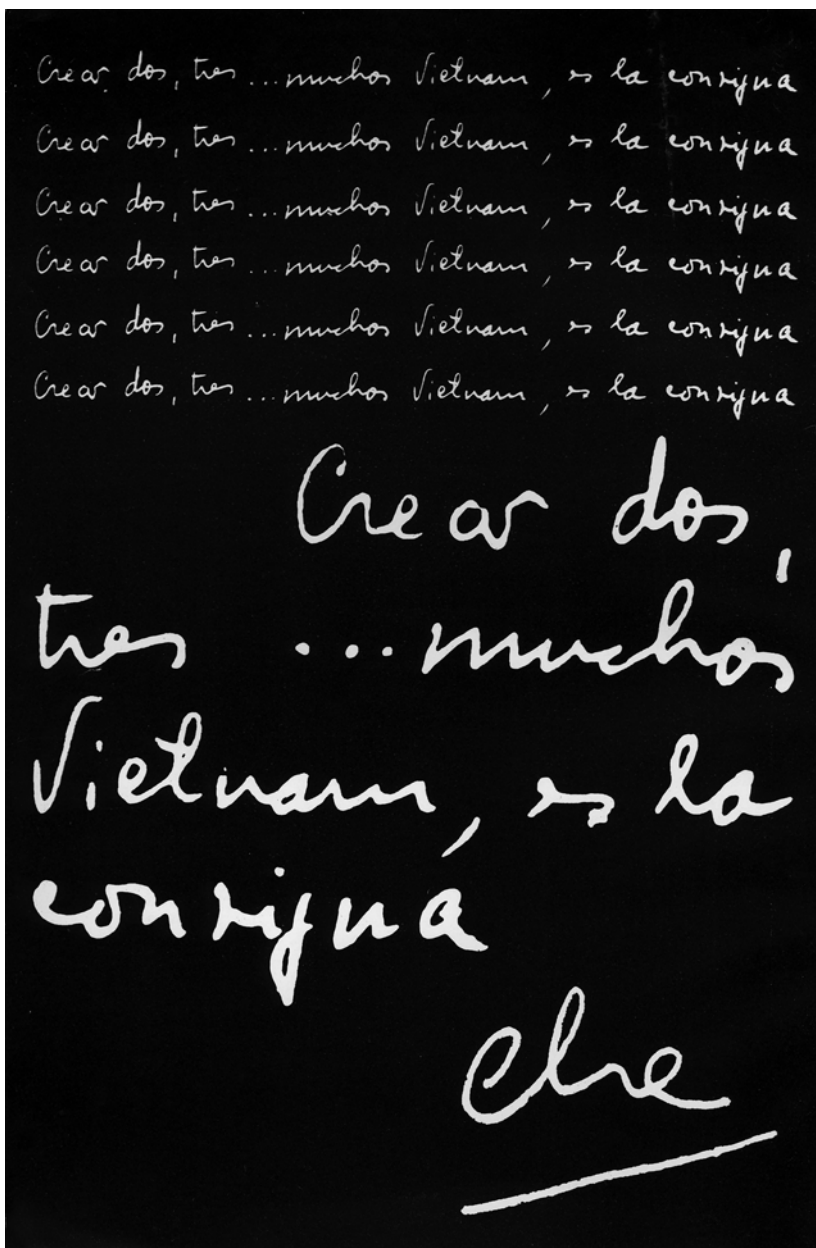 Crear dos, tres ... muchos Vietnam, es la consigna
Crear dos, tres ... muchos Vietnam, es la consigna
Crear dos, tres ... muchos Vietnam, es la consigna
Crear dos, tres ... muchos Vietnam, es la consigna
Crear dos, tres ... muchos Vietnam, es la consigna
Crear dos, tres ... muchos Vietnam, es la consigna
Crear dos,
tres ... muchos
Vietnam, es la
consigna
Che